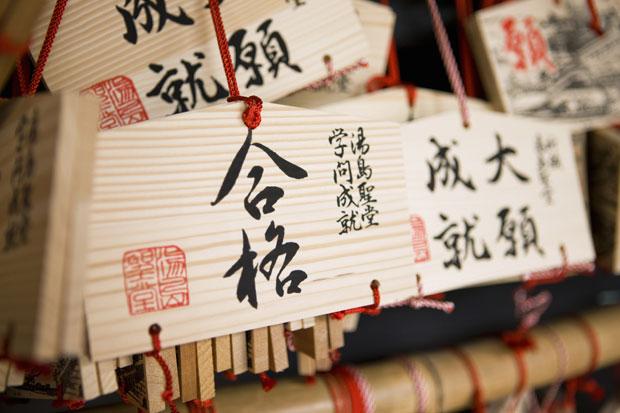 成就
大願
願
湯島聖堂
学問成就
合格
湯島
聖堂
大願
成就